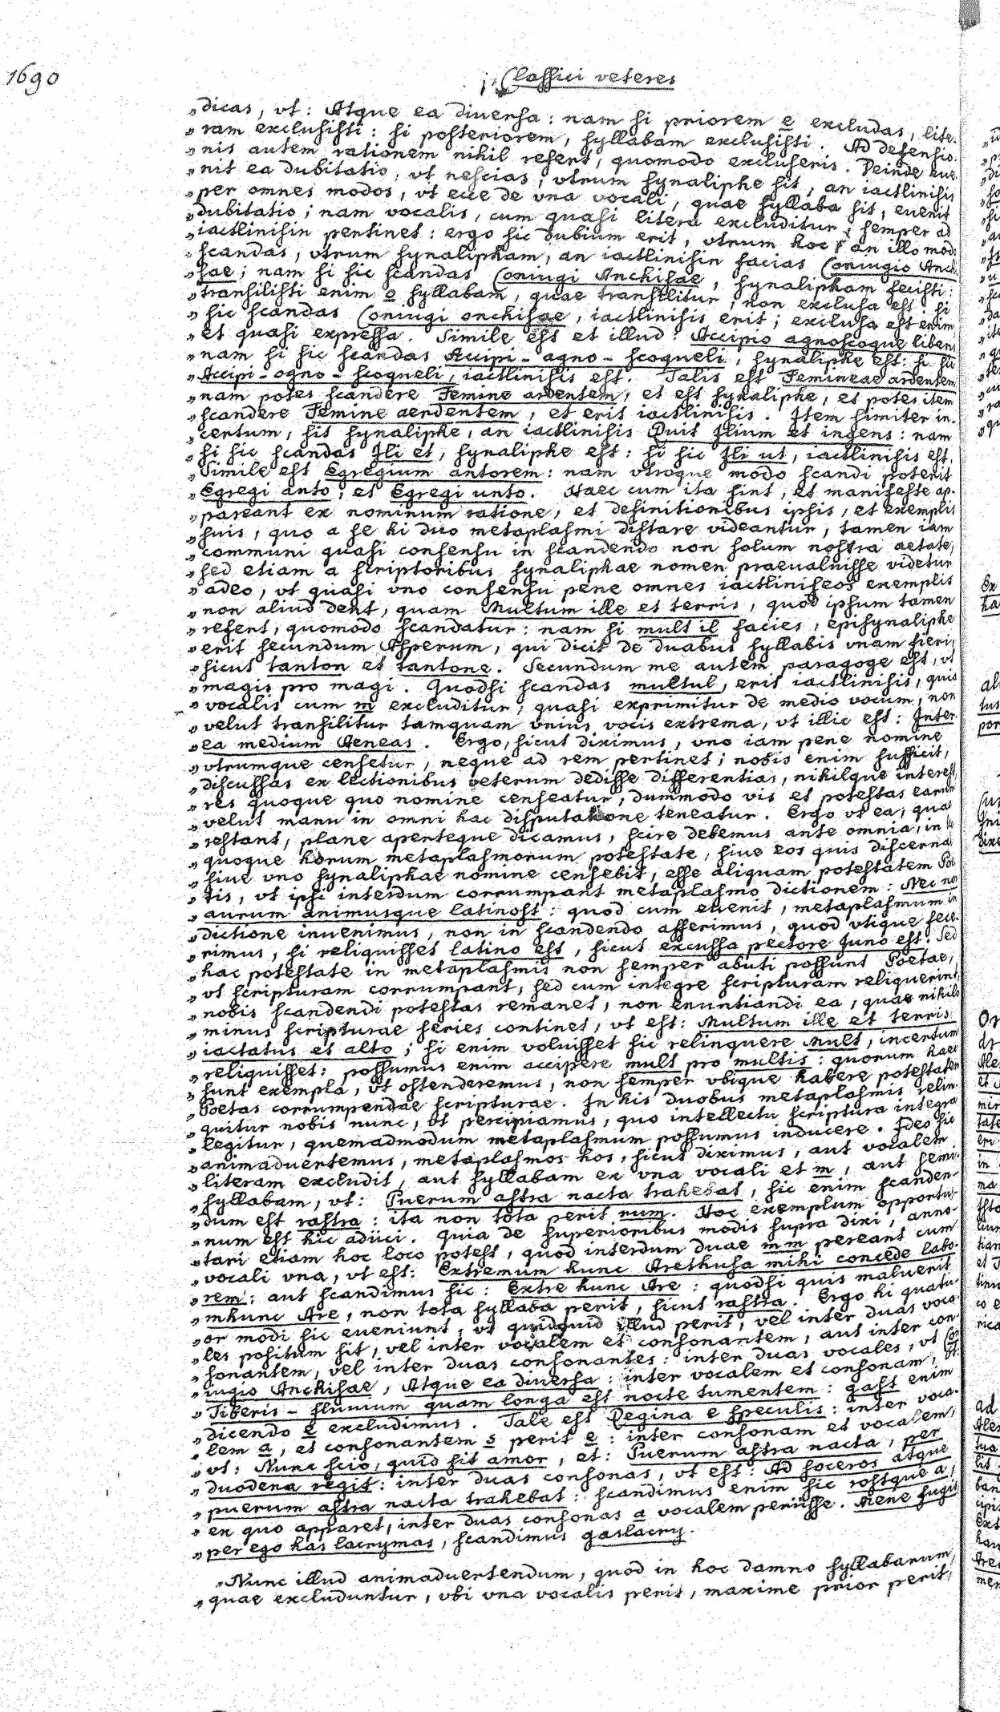 1690
Classici veteres
„dicas, vt: Atque ea diuersa: nam si priorem e excludas, lite-
„ram exclusisti: si posteriorem, syllabam exclusisti. Ad defensio-
„nis autem rationem nihil refert, quomodo excluseris. Deinde eue-
„nit ea dubitatio, vt nescias, vtrum synaliphe sit, an iactlinisis
„per omnes modos, vt ecce de vna vocali, quae syllaba sit, euenit
„dubitatio; nam vocalis, cum quasi litera excluditur, semper ad
„iactlinisin pertinet: ergo sic dubium erit, vtrum hoc, an illo modo
„scandas, vtrum synalipham, an iactlinisin facias Coniugio Anchi-
„sae; nam si sic scandas Coniugi Anchisae, synalipham fecisti;
„transilisti enim o syllabam, quae transilitur, non exclusa est: si
„sic scandas Coniugi onchisae, iactlinisis erit; exclusa est enim,
„et quasi expressa. Simile est et illud: Accipio agnoscoque libens
„nam si sic scandas Accipi-agno-scoqueli, synaliphe est: si sic
„Accipi-ogno-scoqueli, iactlinisis est. Talis est Femineae ardentem
„nam potes scandere Femine ardentem, et est synaliphe, et potes item
„scandere Femine aerdentem, et erit iactlinisis. Item simiter in-
„certum, sit synaliphe, an iactlinisis Quit Ilium et ingens: nam
„si sic scandas Ili et, synaliphe est: si sic Ili ut, iactlinisis est,
„Simile est Egregium antorem: nam vtroque modo scandi poterit
„Egregi anto; et Egregi unto. Haec cum ita sint, et manifeste ap-
„pareant ex nominum ratione, et definitionibus ipsis, et exemplis
„suis, quo a se hi duo metaplasmi distare videantur, tamen iam
„communi quasi consensu in scandendo non solum nostra aetate,
„sed etiam a scriptoribus synaliphae nomen praeualuisse videtur
„adeo, vt quasi vno consensu pene omnes iactliniseos exemplis
„non aliud dent, quam Multum ille et terris, quod ipsum tamen
„refert, quomodo scandatur: nam si mult il facies, episynaliphe
„erit secundum Asperum, qui dicit de duabus syllabis vnam fieri,
„sicut tanton et tantone. Secundum me autem paragoge est, vt
„magis pro magi. Quodsi scandas multul, erit iactlinisis, quia
„vocalis cum m excluditur, quasi exprimitur de medio vocum, non
„velut transilitur tamquam vnius vocis extrema, vt illic est: Inter
„ea medium Aeneas. Ergo, sicut diximus, vno iam pene nomine
„vtrumque censetur, neque ad rem pertinet; nobis enim sufficit,
„discussas ex lectionibus veterum dedisse differentias, nihilque interest,
„res quoque quo nomine censeatur, dummodo vis et potestas earum
„velut manu in omni hac disputatione teneatur. Ergo vt ea, quae
„restant, plane aperteque dicamus, scire debemus ante omnia, in
„quoque horum metaplasmorum potestate, siue eos quis discernat,
„siue vno synaliphae nomine censebit, esse aliquam potestatem Poe-
„tis, vt ipsi interdum corrumpant metaplasmo dictionem: Nec no
„aurum animusque latinost: quod cum euenit, metaplasmum in
„dictione inuenimus, non in scandendo afferimus, quod vtique fece-
„rimus, si reliquisset latino est, sicut excussa pectore Iuno est. Sed
„hac potestate in metaplasmis non semper abuti possunt Poetae,
„vt scripturam corrumpant, sed cum integre scripturam reliquerint,
„nobis scandendi potestas remanet, non enuntiandi ea, quae nihilo
„minus scripturae series continet, vt est: Multum ille et terris
„iactatus et alto; si enim voluisset sic relinquere Mult, incertum
„reliquisset: possumus enim accipere mult pro multis: quorum haec
„sunt exempla, vt ostenderemus, non semper vbique habere potestatem
„Poetas corrumpendae scripturae. In his duobus metaplasmis relin-
„quitur nobis nunc, vt percipiamus, quo intellectu scriptura integra
„legitur, quemadmodum metaplasmum possumus inducere. Ideo sic
„animaduertemus, metaplasmos hos, sicut diximus, aut vocalem
„literam excludit, aut syllabam ex vna vocali et m, aut semi-
„syllabam, vt: Puerum astra nacta trahebat, sic enim scanden-
„dum est rastra: ita non tota perit rum. Hoc exemplum opportu-
„num est hic adiici. Quia de superioribus modis supra dixi, anno-
„tari etiam hoc loco potest, quod interdum duae mm pereant cum
„vocali vna, vt est: Extremum hunc Arethusa mihi concede labo-
„rem: aut scandimus sic: Extre hunc Are: quodsi quis maluerit
„mhunc Are, non tota syllaba perit, sicut rastra. Ergo hi quatu-
„or modi sic eueniunt, vt quidquid illud perit, vel inter duas voca-
„les positum sit, vel inter vocalem et consonantem, aut inter con-
„sonantem, vel inter duas consonantes: inter duas vocales, vt Con-
„iugio Anchisae, Atque ea diuersa: inter vocalem et consonam, vt:
„Tiberis-fluuium quam longa est nocte tumentem: gast enim
„dicendo e excludimus. Tale est Regina e speculis: inter voca-
„lem a, et consonantem s perit e: inter consonam et vocalem,
„vt: Nunc scio, quid sit amor, et: Puerum astra nacta, per
„duodena regit: inter duas consonas, vt est: Ad soceros atque
„puerum astra nacta trahebat: scandimus enim sic rostque a,
„ex quo apparet, inter duas consonas a vocalem periisse. Mene fugis
„per ego has lacrymas, scandimus gaslacry.
„Nunc illud animaduertendum, quod in hoc damno syllabarum,
„quae excluduntur, vbi vna vocalis perit, maxime prior perit,